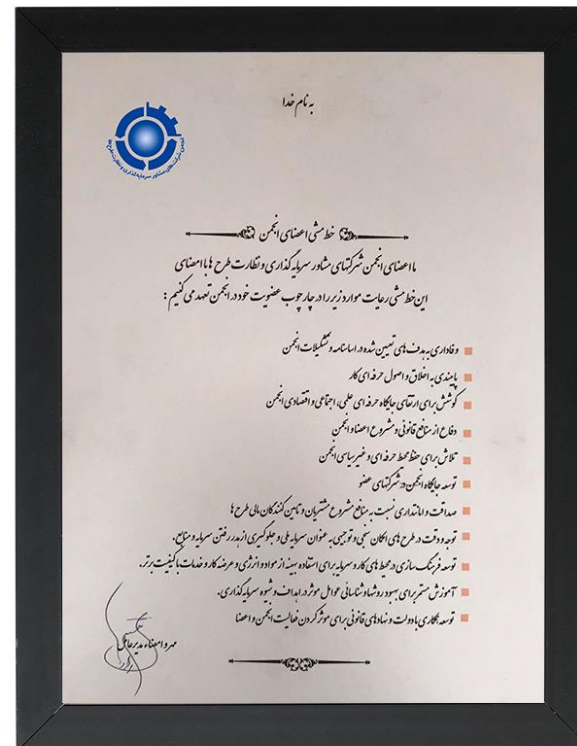 به نام خدا
انجمن شرکت‌های مشاور سرمایه‌گذاری و نظارت طرح‌ها
خط مشی اعضای انجمن
ما اعضای انجمن شرکتهای مشاور سرمایه گذاری و نظارت طرح ها با امضای
این خط مشی رعایت موارد زیر را در چارچوب عضویت خود در انجمن تعهد می کنیم :
وفاداری به هدف های تعیین شده در اساسنامه و تشکیلات انجمن
پایبندی به اخلاق و اصول حرفه ای کار
کوشش برای ارتقای جایگاه حرفه ای علمی، اجتماعی و اقتصادی انجمن
دفاع از منافع قانونی و مشروع اعضا و انجمن
تلاش برای حفظ محیط حرفه ای و غیر سیاسی انجمن
توسعه جایگاه انجمن در شرکتهای عضو
صداقت و امانتداری نسبت به منافع مشروع مشتریان و تامین کنندگان مالی طرح ها
توجه و دقت در طرح های امکان سنجی و توجیهی به عنوان سرمایه ملی و جلوگیری از هدر رفتن سرمایه و منابع.
توسعه فرهنگ سازی در محیط های کار و سرمایه برای استفاده بهینه از مواد و انرژی و عرضه کار و خدمات با کیفیت برتر.
آموزش مستمر برای بهبود روشها و شناسائی عوامل موثر در اهداف و شیوه سرمایه گذاری.
توسعه همکاری با دولت و نهادهای قانونی برای موثر کردن فعالیت انجمن و اعضا
مهر و امضاء مدیرعامل